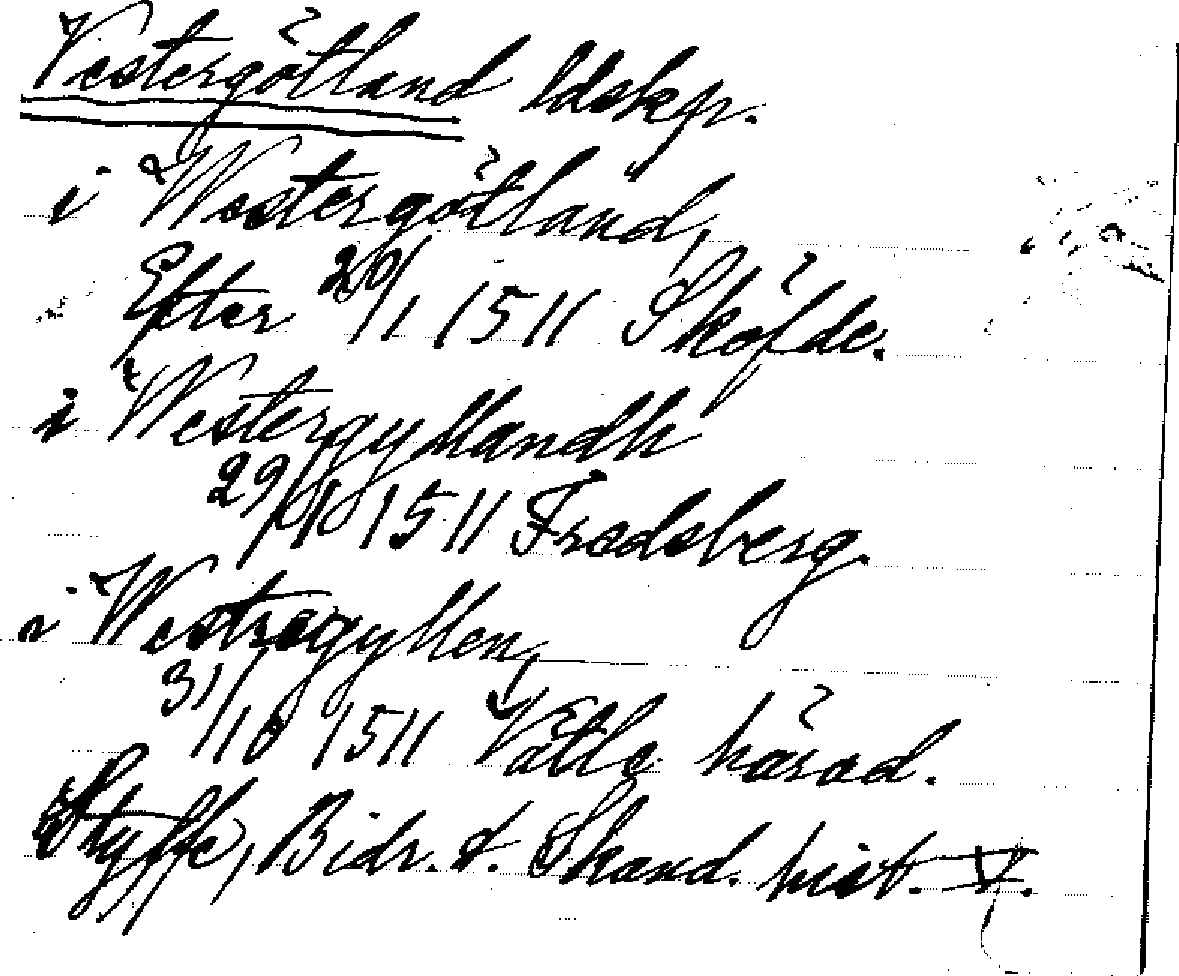 Vestergötland ldskp.
i Westergötland,
Efter 20/1 1511 Sköfde.
i Westergyllandh
29/10 1511 Fredsberg.
i Westregyllen,
31/10 1511 Vätle härad.
Styffe, Bidr. t. Skand. hist. V.